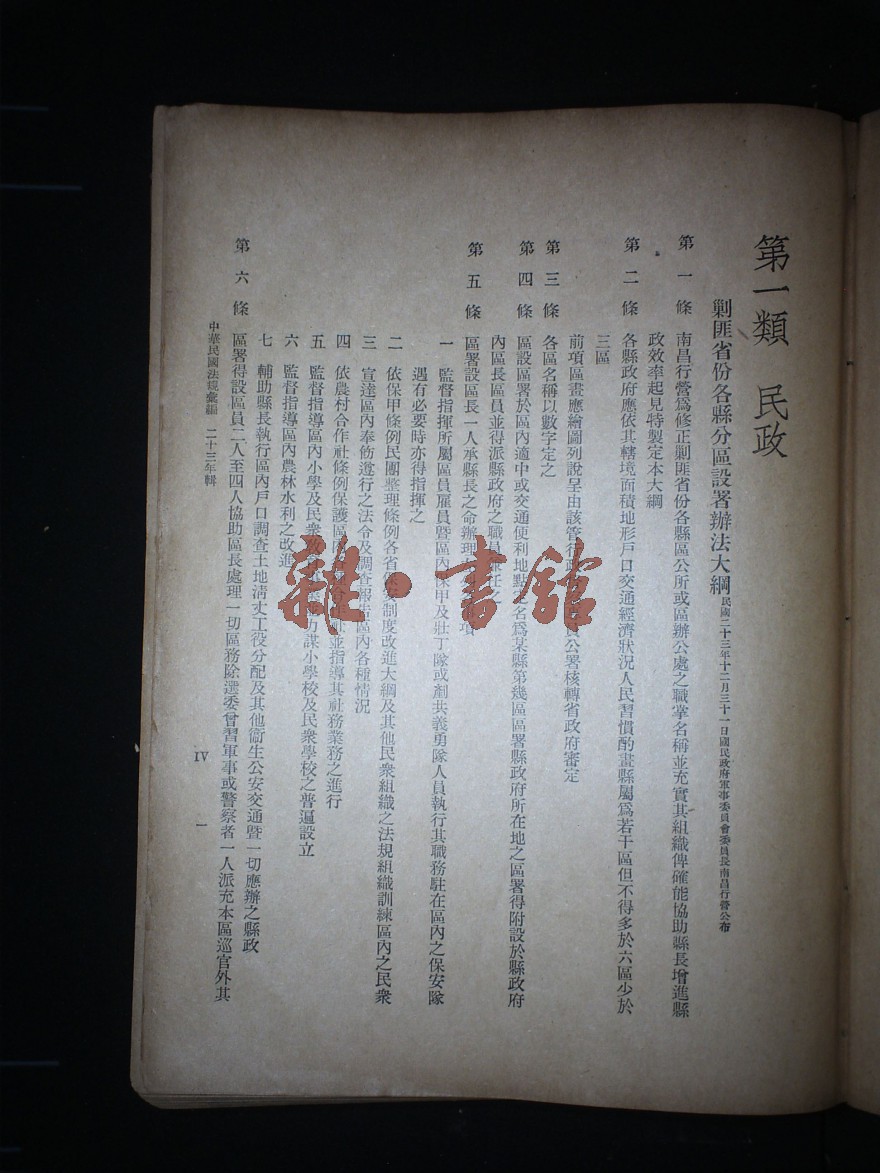 第一類 民政
剿匪省份各縣分區設署辦法大綱 民國二十三年十二月三十一日國民政府軍事委員會委員長南昌行營公布
第一條 南昌行營爲修正剿匪省份各縣區公所或區辦公處之職掌名稱並充實其組織俾確能協助縣長增進縣
政效率起見特製定本大綱
第二條 各縣政府應依其轄境面積地形戶口交通經濟狀況人民習慣酌畫縣屬爲若干區但不得多於六區少於
三區
前項區畫應繪圖列說呈由該管行政公署核轉省政府審定
第三條 各區名稱以數字定之
第四條 區設區署於區內適中或交通便利地點定名爲某縣第幾區區署縣政府所在地之區署得附設於縣政府
內區長區員並得派縣政府之職員兼任之
第五條 區署設區長一人承縣長之命辦理項
一 監督指揮所屬區員雇員暨區內保甲及壯丁隊或剷共義勇隊人員執行其職務駐在區內之保安隊
遇有必要時亦得指揮之
二 依保甲條例民團整理條例各省保安制度改進大綱及其他民衆組織之法規組織訓練區內之民衆
三 宣達區內奉飭遵行之法令及調查報告區內各種情況
四 依農村合作社條例保護區內並指導其社務業務之進行
五 監督指導區內小學及民衆力謀小學校及民衆學校之普遍設立
六 監督指導區內農林水利之改進
七 輔助縣長執行區內戶口調查土地淸丈工役分配及其他衞生公安交通暨一切應辦之縣政
第六條 區署得設區員二人至四人協助區長處理一切區務除選委曾習軍事或警察者一人派充本區巡官外其
中華民國法規彙編 二十三年輯 IV 一
雜·書館